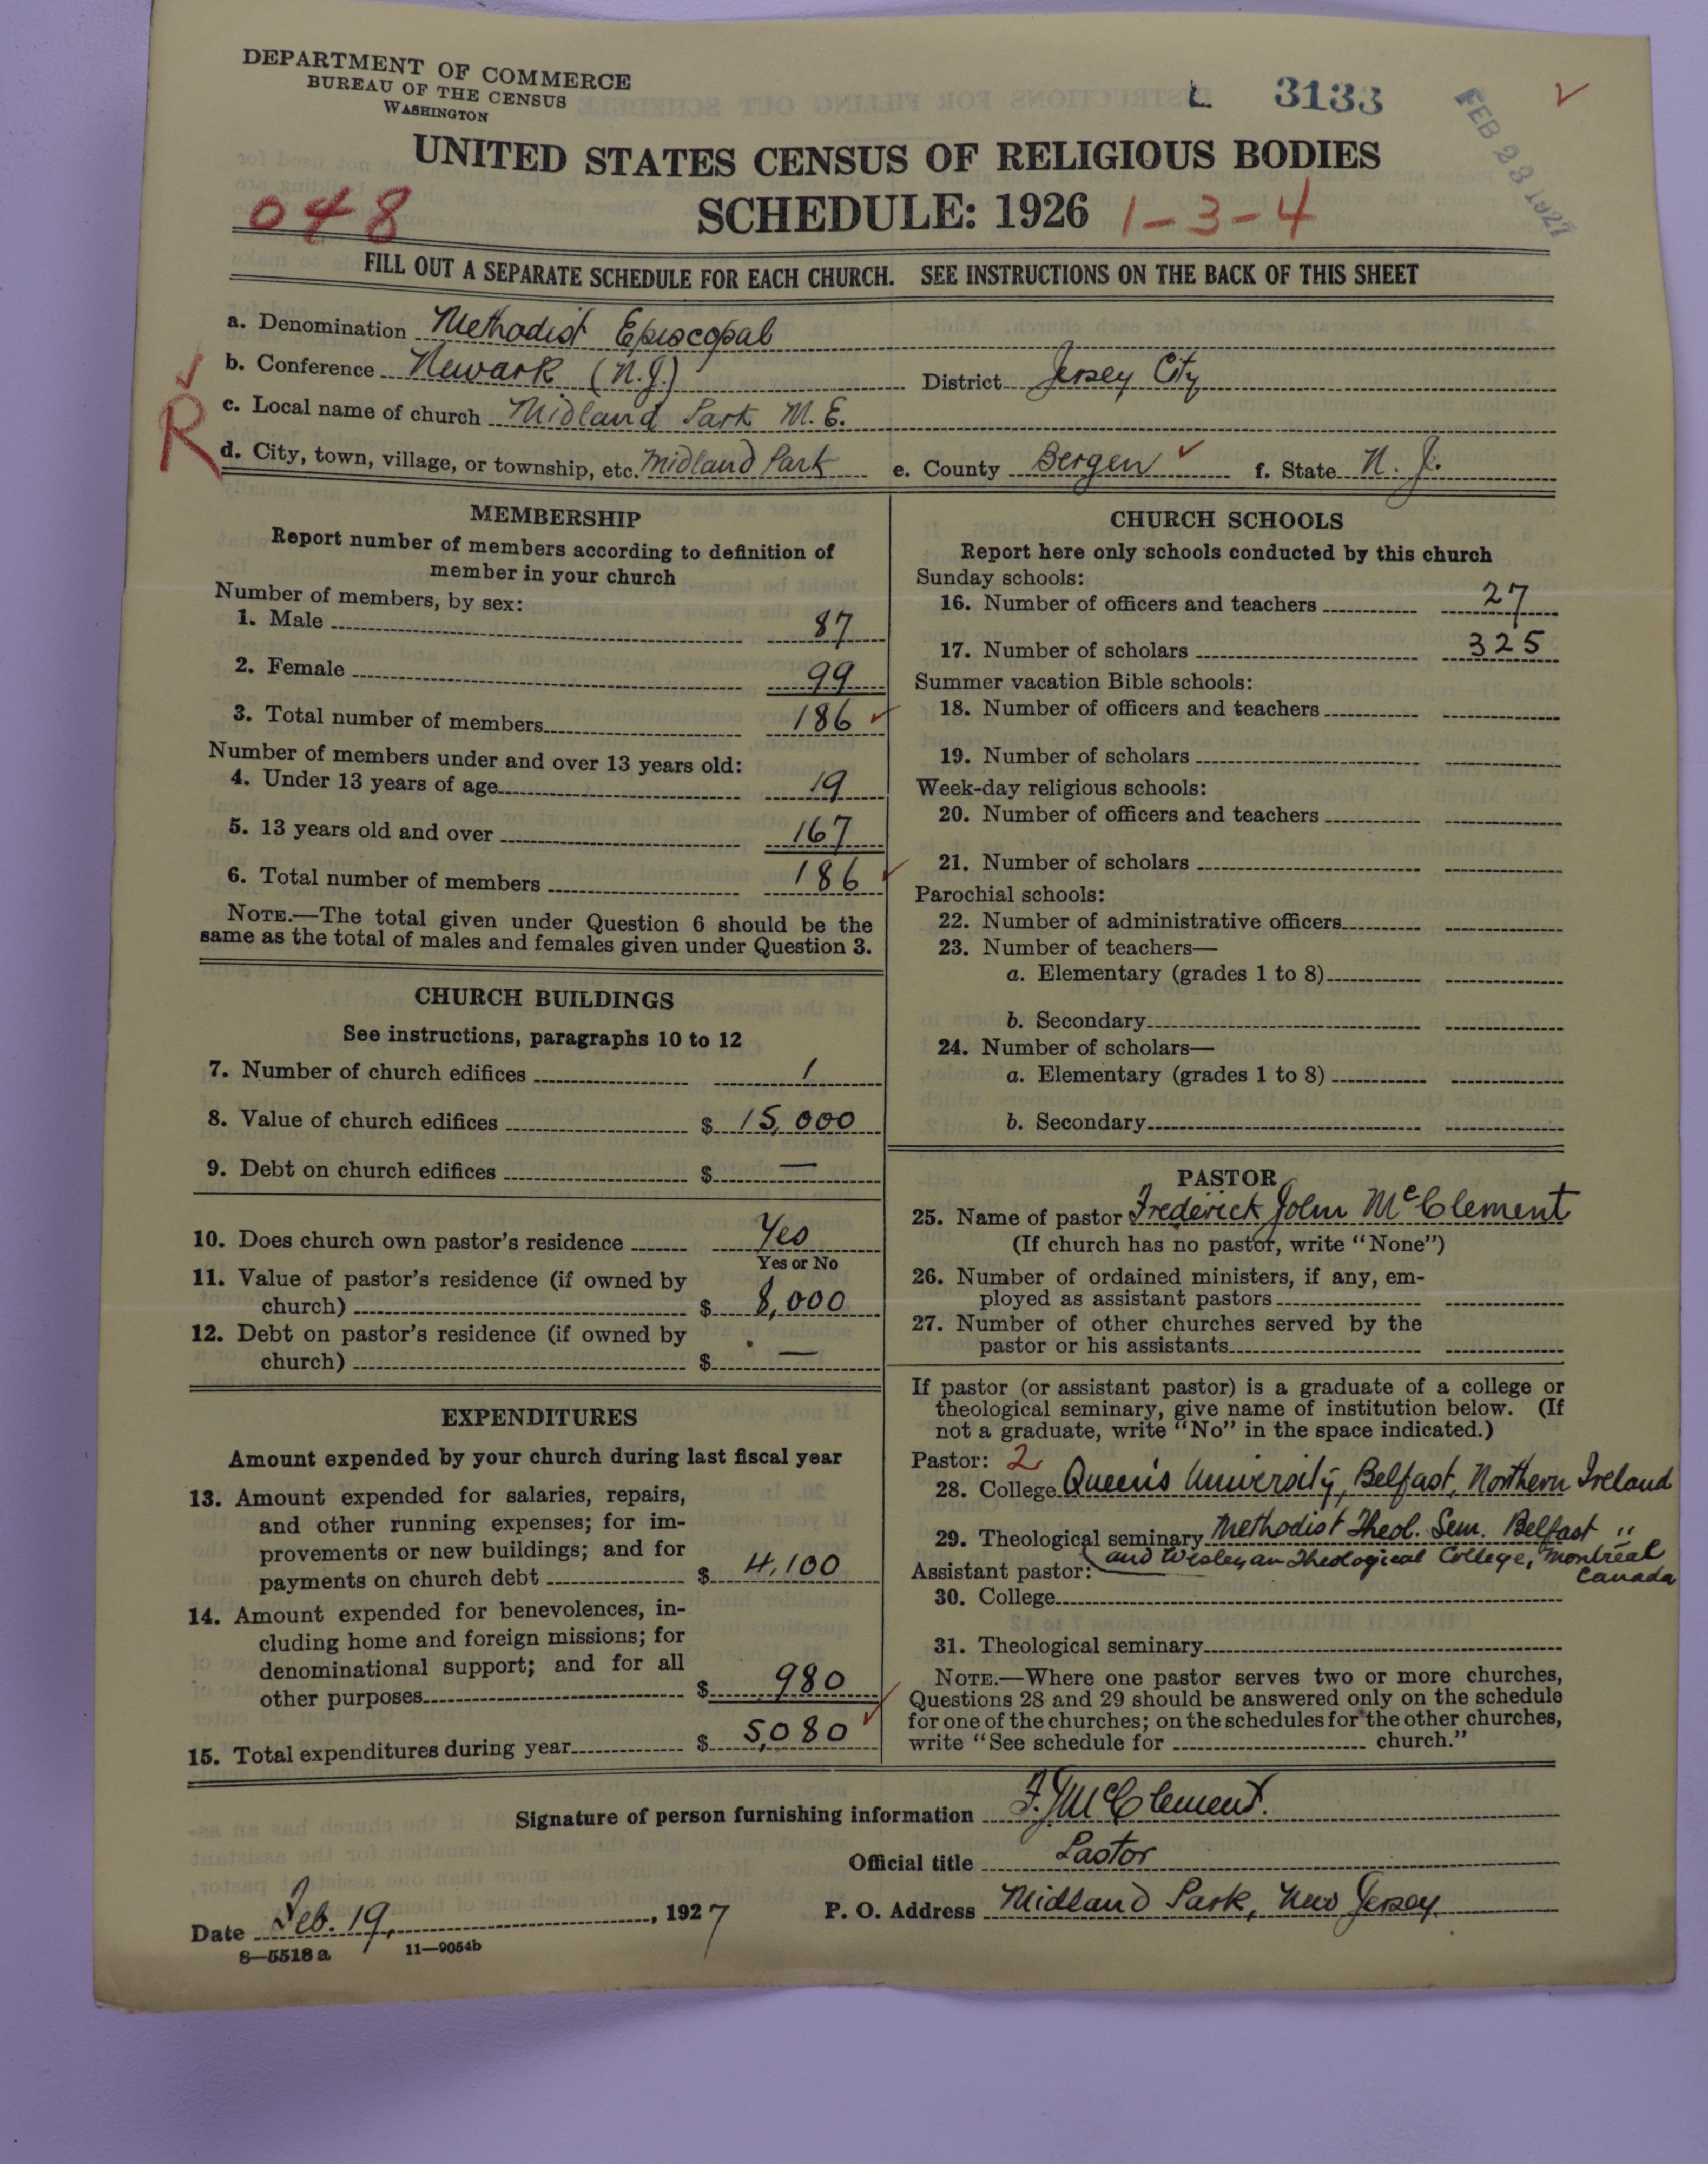 DEPARTMENT OF COMMERCE
BUREAU OF THE CENSUS
WASHINGTON
L 3133
FEB 23 1927
UNITED STATES CENSUS OF RELIGIOUS BODIES
048
SCHEDULE: 1926 1-3-4
FILL OUT A SEPARATE SCHEDULE FOR EACH CHURCH. SEE INSTRUCTIONS ON THE BACK OF THIS SHEET
a. Denomination Methodist Episcopal
b. Conference Newark (N.J.) District Jersey City
R
c. Local name of church Midland Park M.E.
d. City, town, village, or township, etc. Midland Park e. County Bergen f. State N. J.
MEMBERSHIP
Report number of members according to definition of
member in your church
Number of members, by sex:
1. Male 87
2. Female 99
3. Total number of members 186
Number of members under and over 13 years old:
4. Under 13 years of age 19
5. 13 years old and over 167
6. Total number of members 186
NOTE.—The total given under Question 6 should be the
same as the total of males and females given under Question 3.
CHURCH BUILDINGS
See instructions, paragraphs 10 to 12
7. Number of church edifices 1
8. Value of church edifices $ 15,000
9. Debt on church edifices $ —
10. Does church own pastor's residence Yes
Yes or No
11. Value of pastor's residence (if owned by
church) $ 8,000
12. Debt on pastor's residence (if owned by
church) $ —
EXPENDITURES
Amount expended by your church during last fiscal year
13. Amount expended for salaries, repairs,
and other running expenses; for im-
provements or new buildings; and for
payments on church debt $ 4,100
14. Amount expended for benevolences, in-
cluding home and foreign missions; for
denominational support; and for all
other purposes $ 980
15. Total expenditures during year $ 5,080
CHURCH SCHOOLS
Report here only schools conducted by this church
Sunday schools:
16. Number of officers and teachers 27
17. Number of scholars 325
Summer vacation Bible schools:
18. Number of officers and teachers
19. Number of scholars
Week-day religious schools:
20. Number of officers and teachers
21. Number of scholars
Parochial schools:
22. Number of administrative officers
23. Number of teachers—
a. Elementary (grades 1 to 8)
b. Secondary
24. Number of scholars—
a. Elementary (grades 1 to 8)
b. Secondary
PASTOR
25. Name of pastor Frederick John McClement
(If church has no pastor, write "None")
26. Number of ordained ministers, if any, em-
ployed as assistant pastors
27. Number of other churches served by the
pastor or his assistants
If pastor (or assistant pastor) is a graduate of a college or
theological seminary, give name of institution below. (If
not a graduate, write "No" in the space indicated.)
Pastor: 2
28. College Queen's University, Belfast, Northern Ireland
29. Theological seminary Methodist Theol. Sem. Belfast "
and Wesleyan Theological College, Montreal
Canada
Assistant pastor:
30. College
31. Theological seminary
NOTE.—Where one pastor serves two or more churches,
Questions 28 and 29 should be answered only on the schedule
for one of the churches; on the schedules for the other churches,
write "See schedule for church."
Signature of person furnishing information F. J. McClement.
Official title Pastor
Date Feb. 19, 1927 P. O. Address Midland Park, New Jersey
8—5518 a 11—9054b